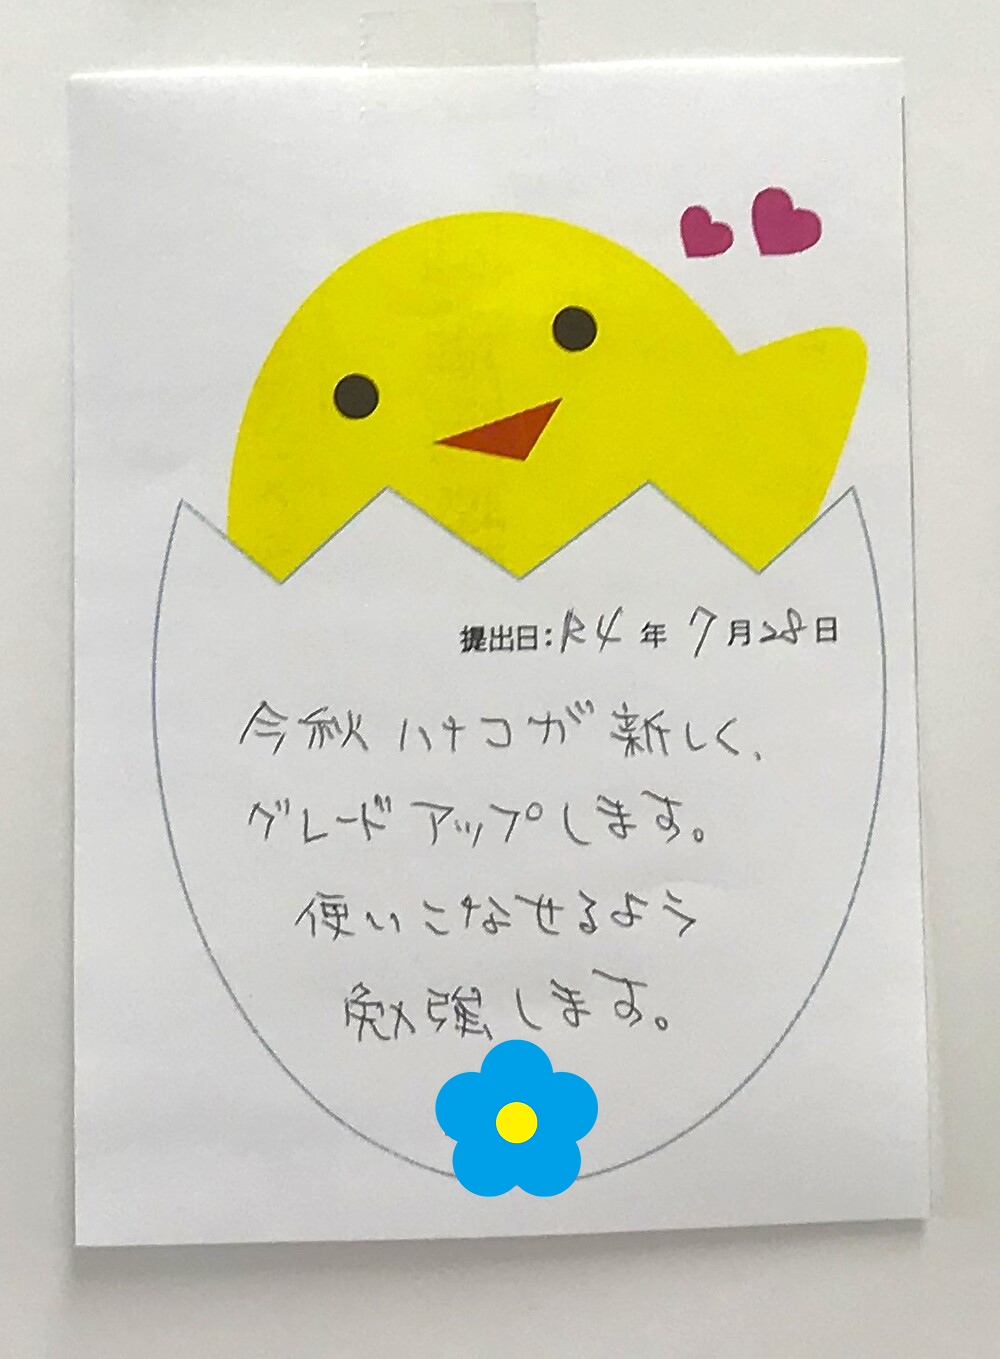 提出日:R4年7月28日
今秋ハナコが新しく、
グレードアップします。
使いこなせるよう
勉強します。